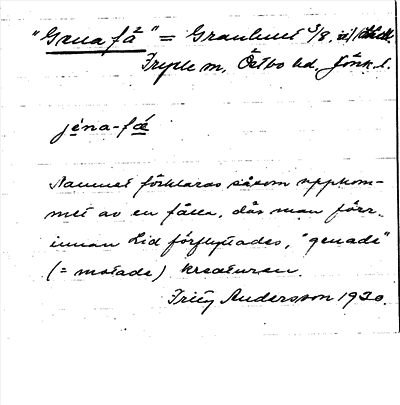 "Gena få" = Granhult 5/8,
Tryde m, Östbo hd. Jönk. l.
jena-fǽ
Namnet förklaras såsom uppkom-
met av en fålla, där man förr,
innan hid förflyttades, "genade"
(= motade) kreaturen.
Fritz Andersson 1930.